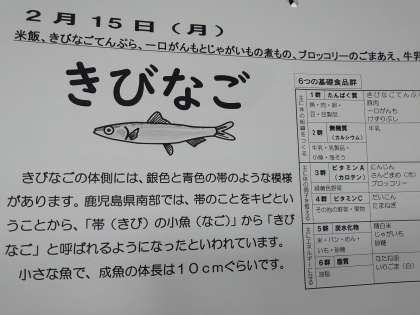 ２月１５日（月）
米飯、きびなごてんぷら、一口がんもとじゃがいもの煮もの、ブロッコリーのごまあえ、牛乳
きびなご
きびなごの体側には、銀色と青色の帯のような模様
があります。鹿児島県南部では、帯のことをキビとい
うことから、「帯（きび）の小魚（なご）」から「きび
なご」と呼ばれるようになったといわれています。
小さな魚で、成魚の体長は１０ｃｍぐらいです。
６つの基礎食品群
１群 たんぱく質
魚・肉・卵・
豆・豆製品
きびなごてんぷ
豚肉
一口がんも
けずりぶし
２群 無機質
（カルシウム）
牛乳・乳製品・
小魚・海そう
牛乳
３群 ビタミンＡ
（カロテン）
緑黄色野菜
にんじん
さんどまめ（冷）
ブロッコリー
４群 ビタミンＣ
その他の野菜・果物
だいこん
たまねぎ
５群 炭水化物
米・パン・めん・
いも・砂糖
精白米
じゃがいも
砂糖
６群 脂質
油脂
なたね油
いりごま（白）